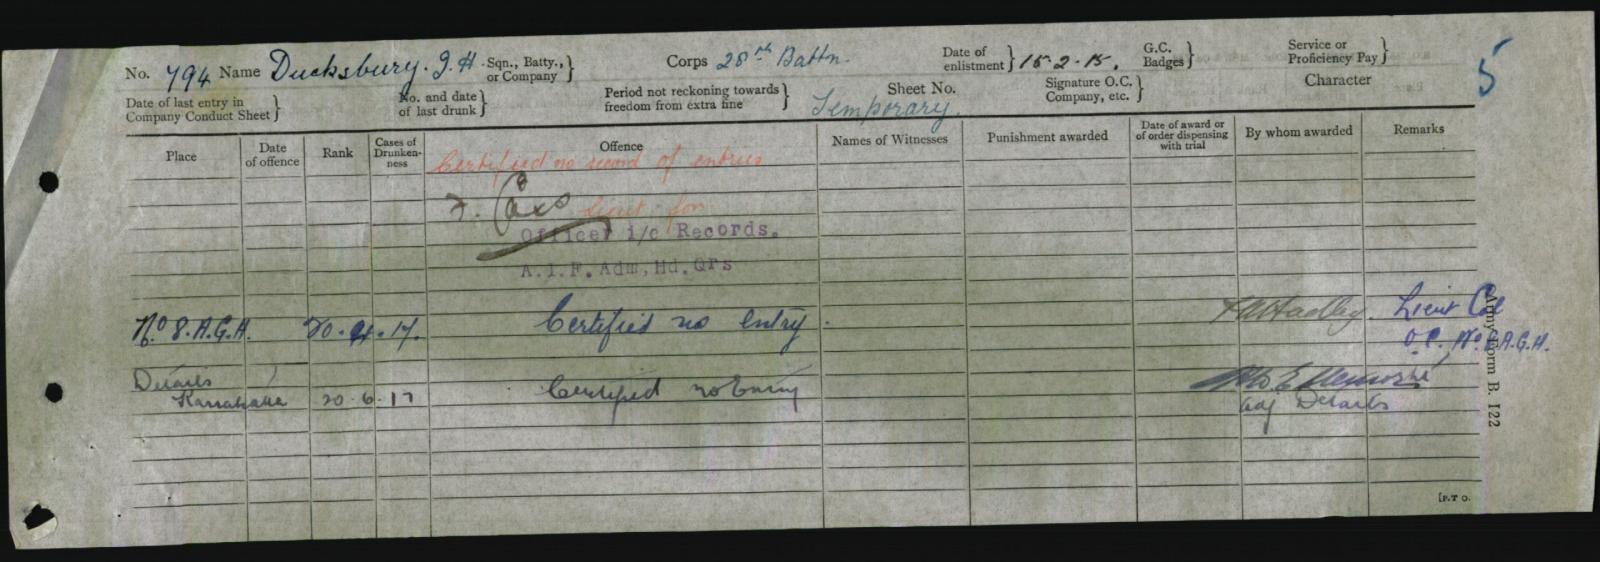 No. 794 Name Ducksbury. J. H. Sqn., Batty., or Company } Corps 28th Battn. Date of enlistment } 15.2.15. G.C. Badges } Service or Proficiency Pay } 5
Date of last entry in Company Conduct Sheet } No. and date of last drunk } Period not reckoning towards freedom from extra fine } Sheet No. Temporary. Signature O.C. Company, etc. } Character
Place Date of offence Rank Cases of Drunken-ness Offence Names of Witnesses Punishment awarded Date of award or of order dispensing with trial By whom awarded Remarks
Certified no record of entries
Lieut for
Officer i/c Records.
A.I.F. Adm, Hd. Qrs
No 8. A.G.H. 20.4.17. Certified no entry. Lieut Col
O.C. No 8 A.G.H.
Details
Karrakatta 20.6.17 Certified no Entry
Adj Details
Army Form B. 122
[P.T O.